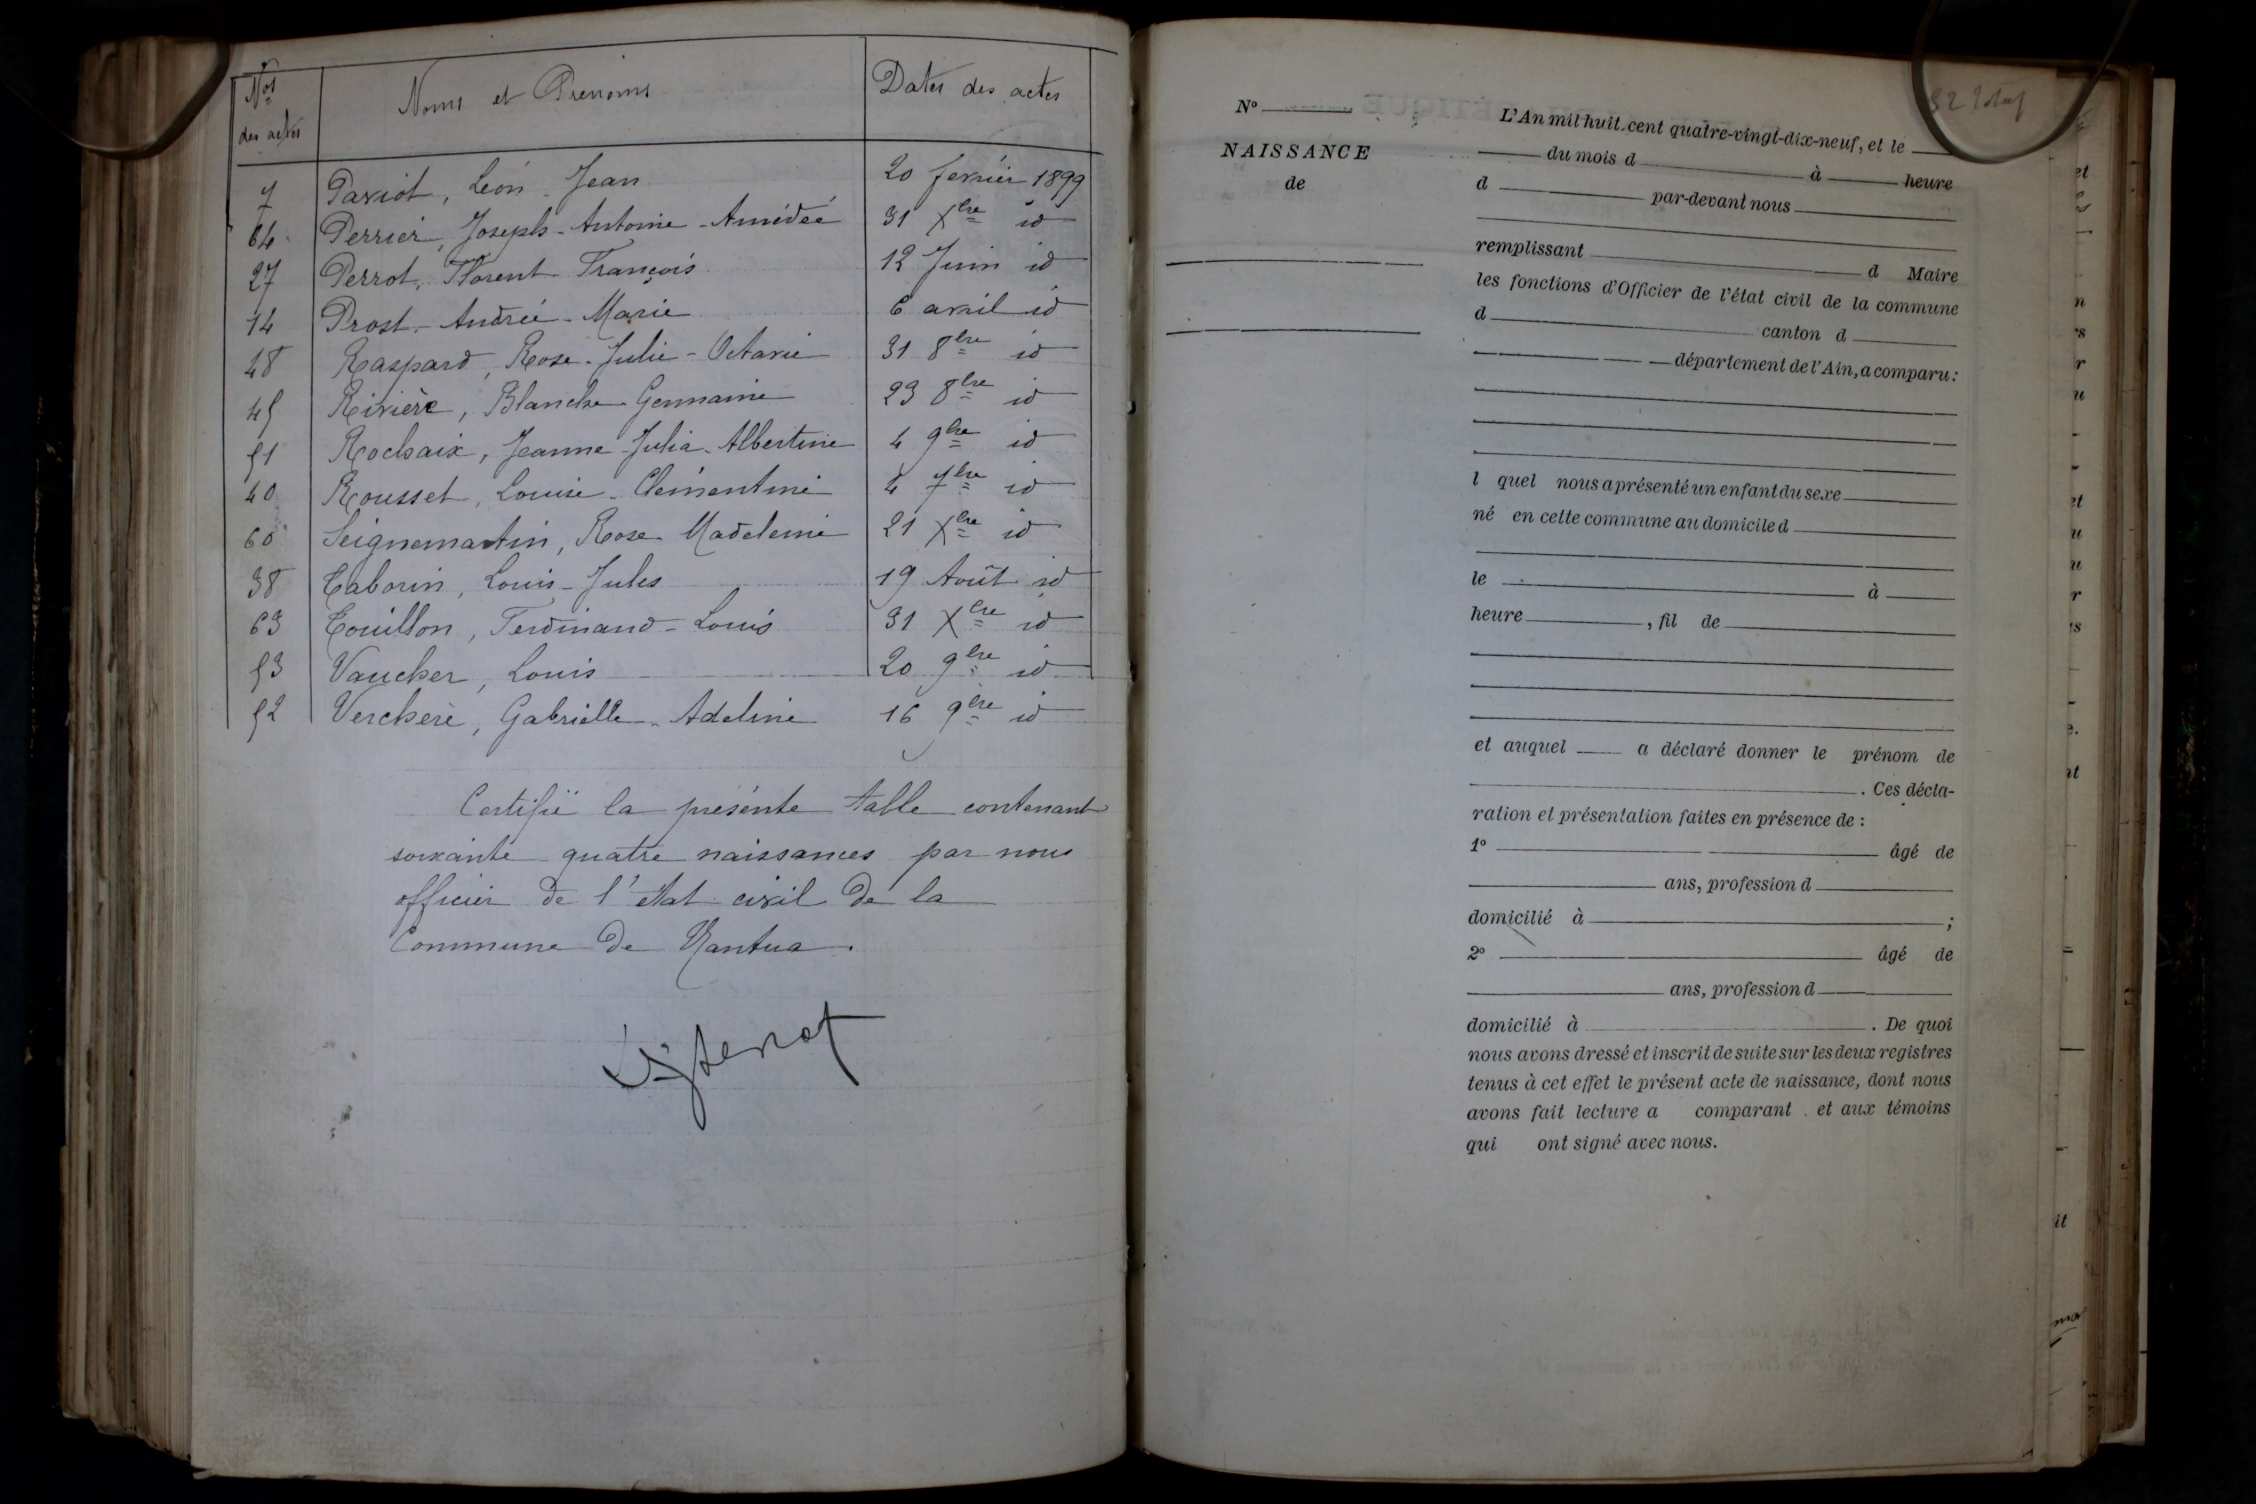 Nos des actes | Noms et Prénoms | Dates des actes
7 | Paviot, Léon Jean | 20 fevrier 1899
64 | Perrier, Joseph-Antoine-Amédeé | 31 Xbre id
27 | Perrot, Florent François | 12 Juin id
14 | Prost-Andreé-Marie | 6 avril id
48 | Raspard, Rose-Julie-Octavie | 31 8bre id
45 | Rivière, Blanche-Germaine | 23 8bre id
51 | Rochaix, Jeanne-Julia-Albertine | 4 9bre id
40 | Rousset, Louise-Clémentine | 4 7bre id
60 | Seignemartin, Rose-Madeleine | 21 Xbre id
38 | Taborin, Louis-Jules | 19 Août id
63 | Touillon, Ferdinand-Louis | 31 Xbre id
53 | Vaucher, Louis | 20 9bre id
52 | Verchère, Gabrielle-Adeline | 16 9bre id
Certifié la présente table contenant
soixante quatre naissances par nous
officier de l'état civil de la
Commune de Nantua.
N°
NAISSANCE
de
L'An mil huit cent quatre-vingt-dix-neuf, et le
du mois d à heure
d par-devant nous
remplissant d Maire
les fonctions d'Officier de l'état civil de la commune
d canton d
département de l'Ain, a comparu :
l quel nous a présenté un enfant du sexe
né en cette commune au domicile d
le à
heure , fil de
et auquel a déclaré donner le prénom de
. Ces décla-
ration et présentation faites en présence de :
1° âgé de
ans, profession d
domicilié à ;
2° âgé de
ans, profession d
domicilié à . De quoi
nous avons dressé et inscrit de suite sur les deux registres
tenus à cet effet le présent acte de naissance, dont nous
avons fait lecture a comparant et aux témoins
qui ont signé avec nous.